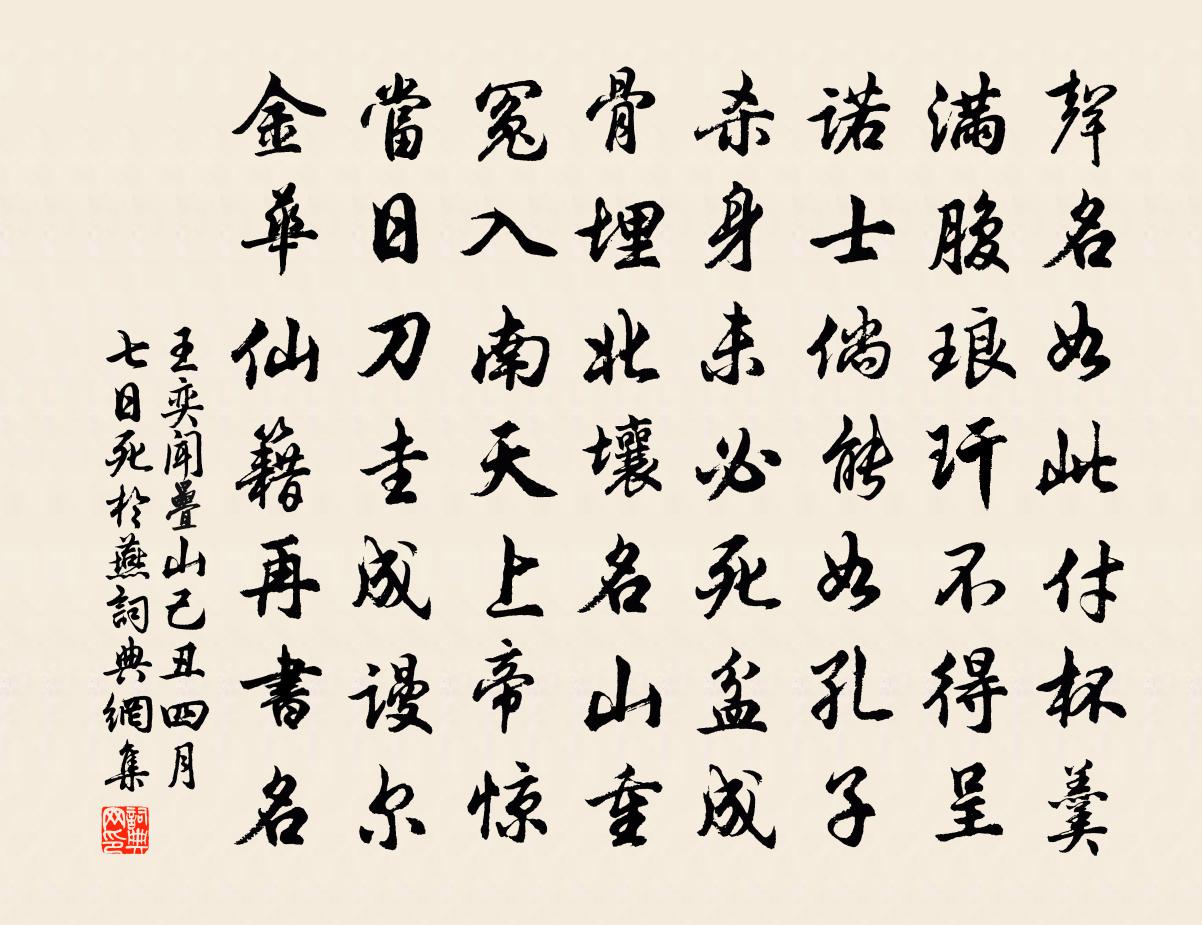 聲名如此付杯羹
满腹琅玕不得呈
諾士倘能如孔子
杀身未必死盆成
骨埋北壤名山重
冤入南天上帝惊
當日刀圭成謾尔
金華仙籍再書名
王奕闻疊山己丑四月
七日死於燕詞典網集
詞典网印